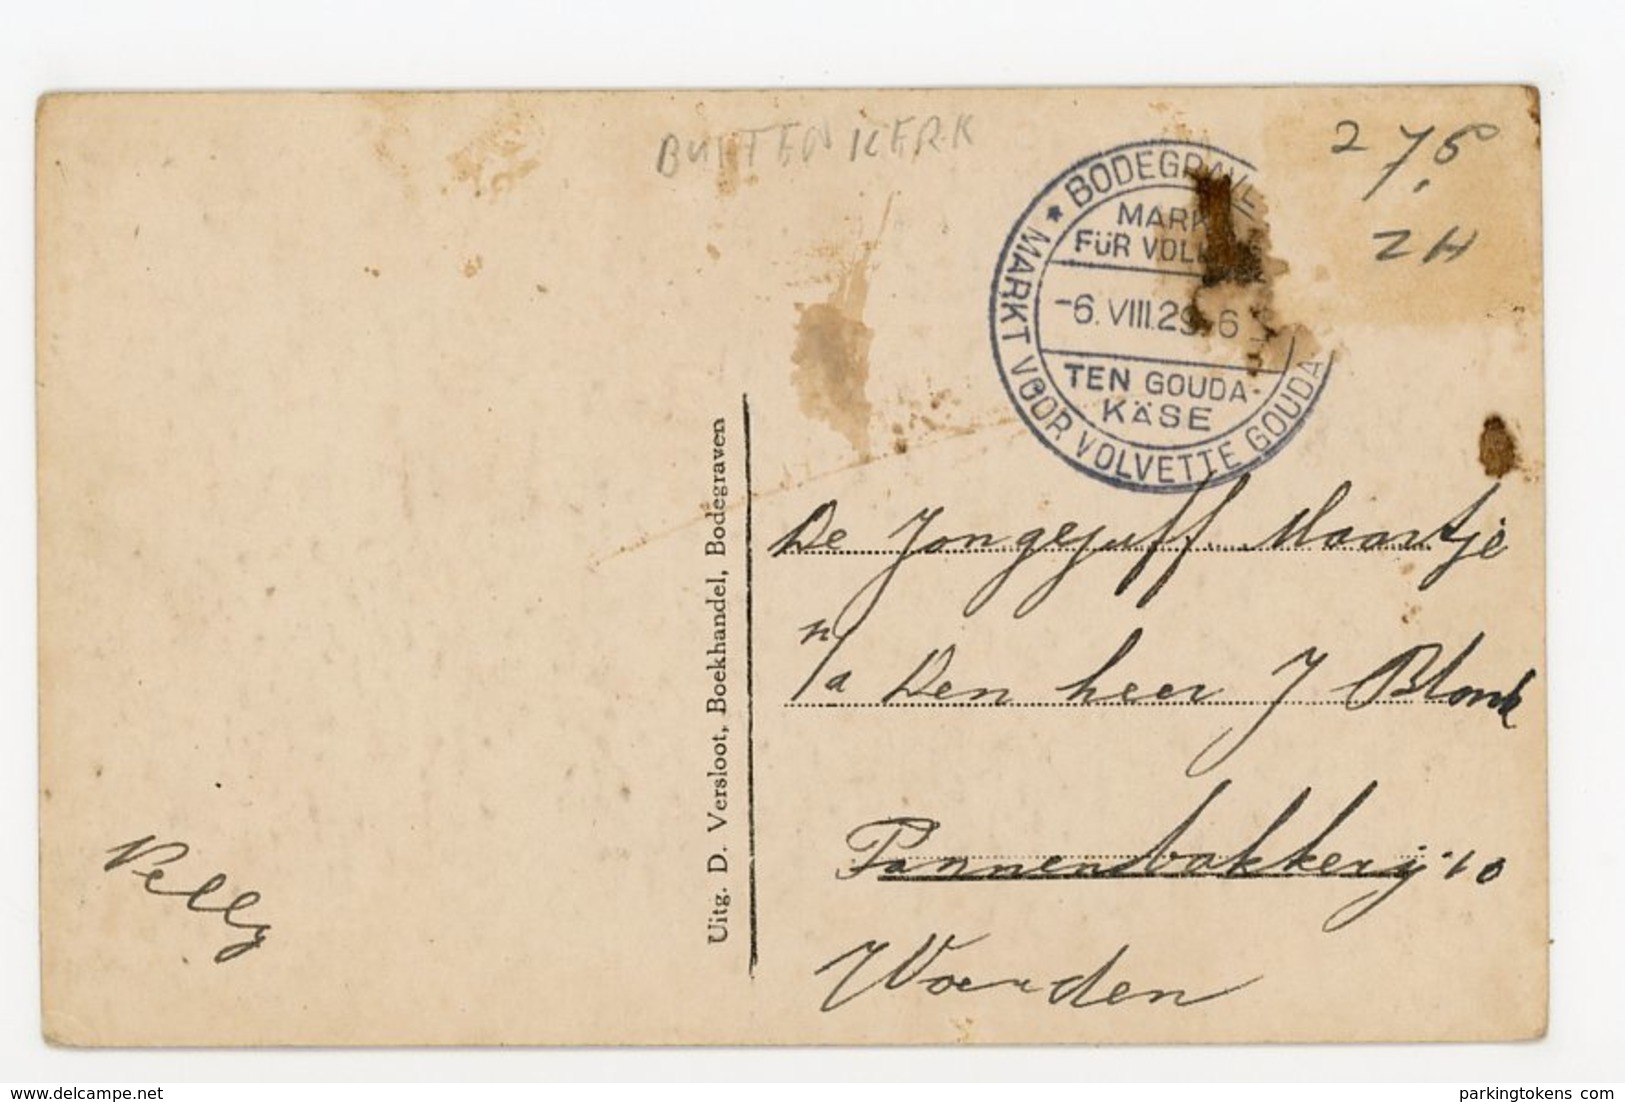 BUITENKERK
2 7,5
ZH
* BODEGRAVE
MARKT VOOR VOLVETTE GOUDA
MARK
FÜR VOL
-6.VIII.29. 6
TEN GOUDA-
KÄSE
Uitg. D. Versloot, Boekhandel, Bodegraven
De Jongejuff. Maartje
p/a Den heer J Blonk
Pannenbakkerij 10
Woerden
Nelly
delcampe.net
parkingtokens.com